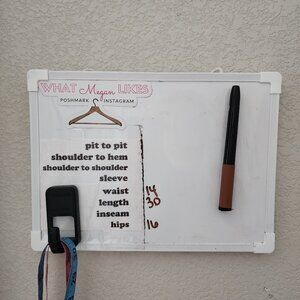 WHAT Megan LIKES
POSHMARK INSTAGRAM
pit to pit
shoulder to hem
shoulder to shoulder
sleeve
waist 14
length 30
inseam
hips 16